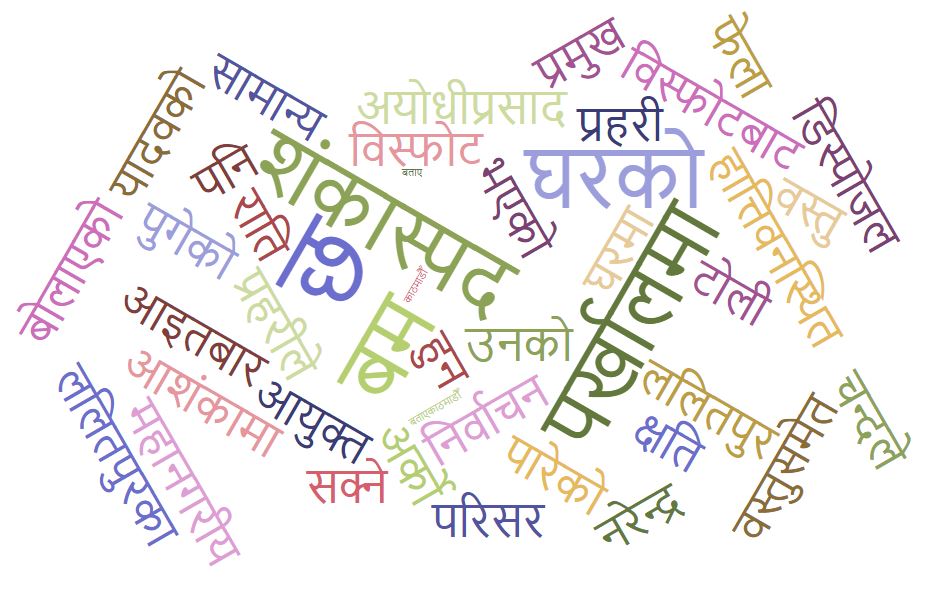 फेला
प्रमुख
सामान्य
विस्फोटबाट
यादवको
अयोधीप्रसाद
प्रहरी
डिस्पोजल
विस्फोट
शंकास्पद
पनि
राति
बताए
भएको
घरको
हात्तिवनस्थित
वस्तु
बोलाएको
पुगेको
छ
घरमा
पर्खालमा
टोली
प्रहरीले
काठमाडौं
बम
आइतबार
हुन
उनको
आशंकामा
आयुक्त
ललितपुर
ललितपुरका
महानगरीय
बताएकाठमाडौं
निर्वाचन
अर्को
क्षति
चन्दले
सक्ने
पारेको
वस्तुसमेत
परिसर
नरेन्द्र